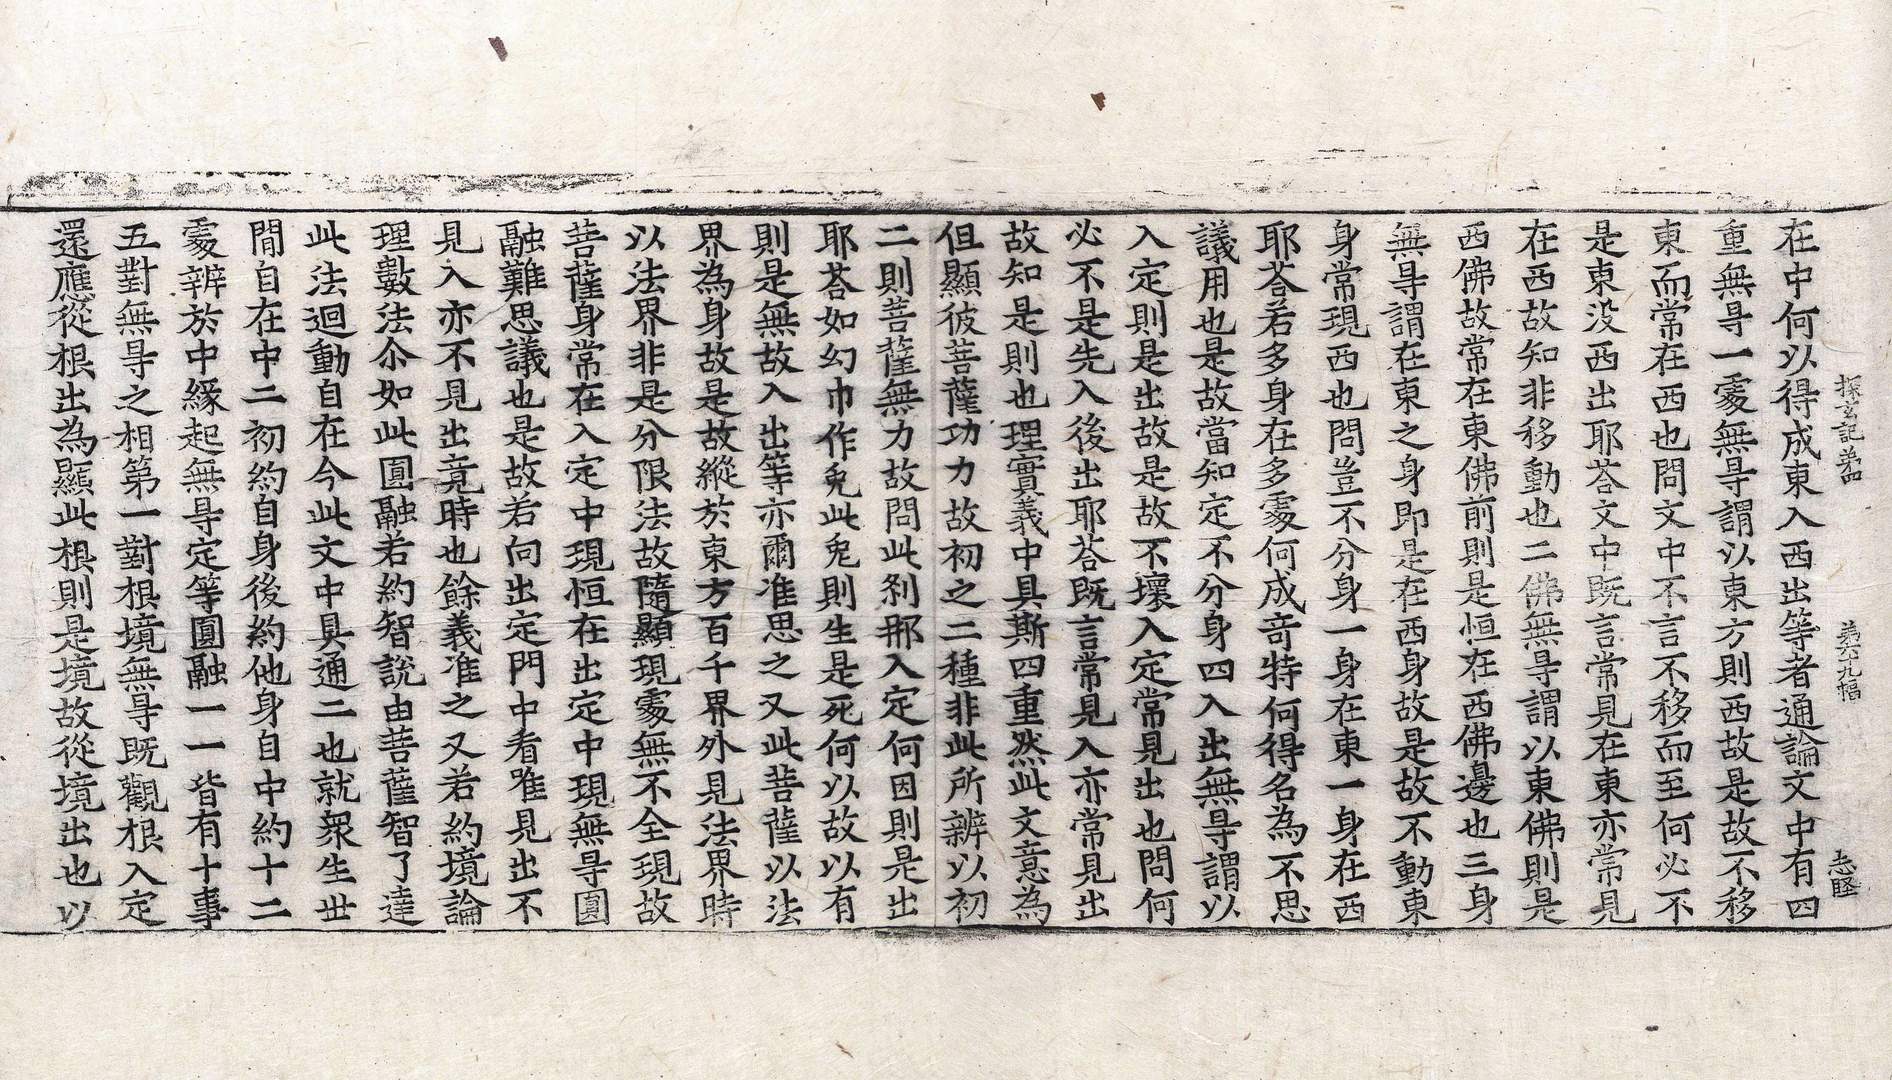 探玄記第四 第六九幅 志堅
在中何以得成東入西出等者通論文中有四
重無㝵一處無㝵謂以東方則西故是故不移
東而常在西也問文中不言不移而至何必不
是東没西出耶荅文中既言常見在東亦常見
在西故知非移動也二佛無㝵謂以東佛則是
西佛故常在東佛前則是恒在西佛邊也三身
無㝵謂在東之身即是在西身故是故不動東
身常現西也問豈不分身一身在東一身在西
耶荅若多身在多處何成奇特何得名為不思
議用也是故當知定不分身四入出無㝵謂以
入定則是出故是故不壞入定常見出也問何
必不是先入後出耶荅既言常見入亦常見出
故知是則也理實義中具斯四重然此文意為
但顯彼菩薩功力故初之二種非此所辨以初
二則菩薩無力故問此刹那入定何因則是出
耶荅如幻巾作兔此兔則生是死何以故以有
則是無故入出等亦爾准思之又此菩薩以法
界為身故是故縱於東方百千界外見法界時
以法界非是分限法故隨顯現處無不全現故
菩薩身常在入定中現恒在出定中現無㝵圓
融難思議也是故若向出定門中看唯見出不
見入亦不見出竟時也餘義准之又若約境論
理數法尒如此圓融若約智説由菩薩智了達
此法迴動自在今此文中具通二也就衆生世
間自在中二初約自身後約他身自中約十二
處辨於中緣起無㝵定等圓融一一皆有十事
五對無㝵之相第一對根境無㝵既觀根入定
還應從根出為顯此根則是境故從境出也以